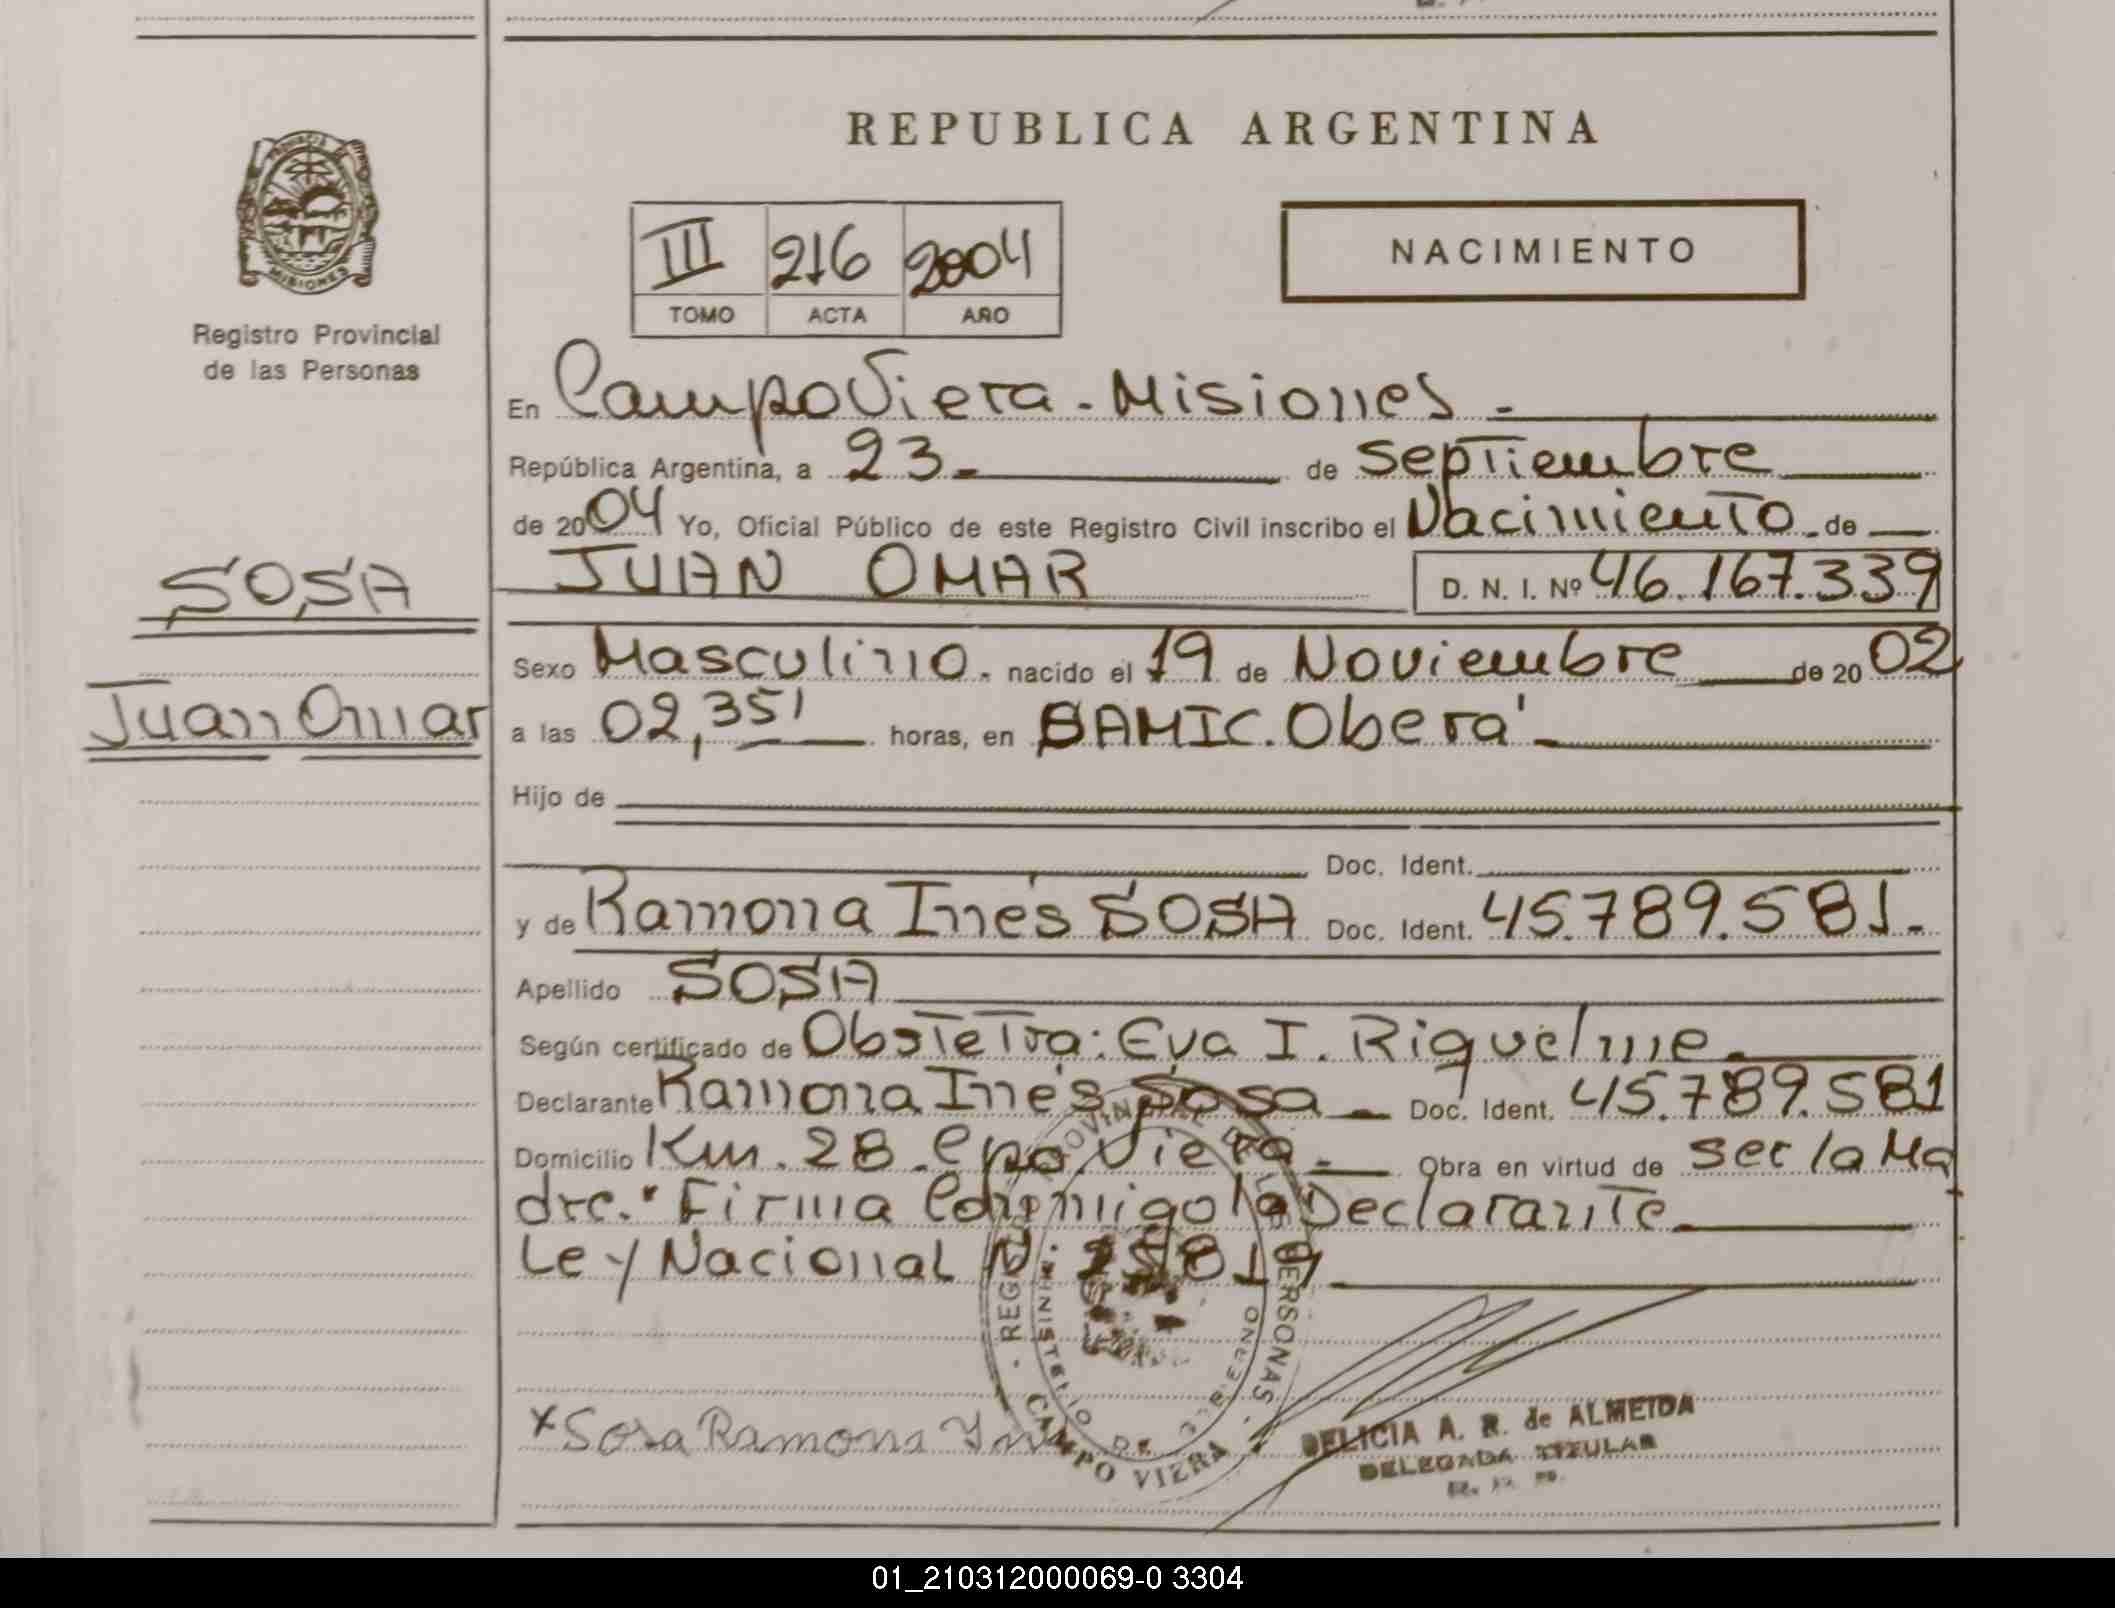 REPUBLICA ARGENTINA
PROVINCIA DE
MISIONES
Registro Provincial
de las Personas
III 216 2004
TOMO ACTA AÑO
NACIMIENTO
En Campo Viera - Misiones -
República Argentina, a 23 - de septiembre
de 2004 Yo, Oficial Público de este Registro Civil inscribo el Nacimiento de
SOSA
JUAN OMAR D. N. I. Nº 46.167.339
Juan Omar
Sexo Masculino. nacido el 19 de Noviembre de 20 02
a las 02,35' horas, en SAMIC. Oberá -
Hijo de
Doc. Ident.
y de Ramona Inés SOSA Doc. Ident. 45.789.581.-
Apellido SOSA
Según certificado de Obstetra: Eva I. Riquelme.
Declarante Ramona Inés Sosa - Doc. Ident. 45.789.581
Domicilio Km. 28. Cpo. Viera - Obra en virtud de ser la Ma
dre." Firma Conmigo la Declarante
Ley Nacional N:
x Sosa Ramona
REGISTRO PROVINCIAL DE LAS PERSONAS
MINISTERIO DE GOBIERNO
CAMPO VIERA
DELICIA A. R. de ALMEIDA
DELEGADA TITULAR
R. P. P.
01_210312000069-0 3304